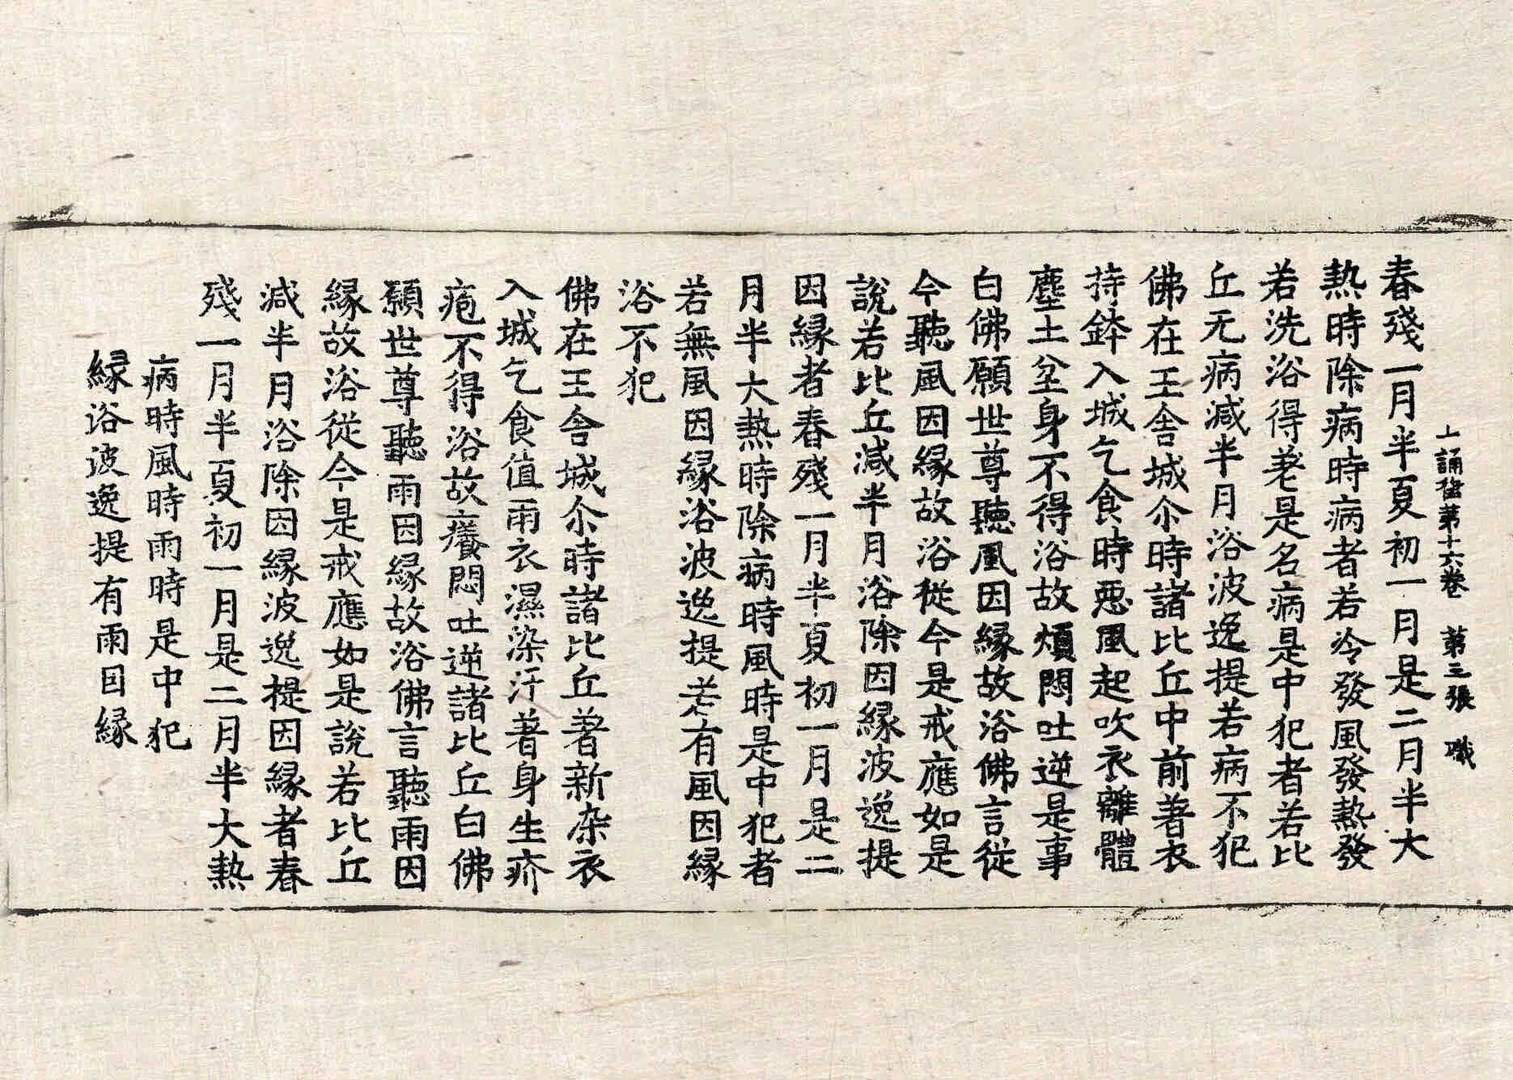 丄誦律第十六卷 第三張 職
春殘一月半夏初一月是二月半大
熱時除病時病者若冷發風發熱發
若洗浴得差是名病是中犯者若比
丘无病減半月浴波逸提若病不犯
佛在王舍城尒時諸比丘中前著衣
持鉢入城乞食時惡風起吹衣離體
塵土坌身不得浴故煩悶吐逆是事
白佛願世尊聽風因緣故浴佛言從
今聽風因緣故浴從今是戒應如是
說若比丘減半月浴除因緣波逸提
因緣者春殘一月半夏初一月是二
月半大熱時除病時風時是中犯者
若無風因緣浴波逸提若有風因緣
浴不犯
佛在王舍城尒時諸比丘著新染衣
入城乞食值雨衣濕染汗著身生疥
疱不得浴故癢悶吐逆諸比丘白佛
願世尊聽雨因緣故浴佛言聽雨因
緣故浴從今是戒應如是說若比丘
減半月浴除因緣波逸提因緣者春
殘一月半夏初一月是二月半大熱
病時風時雨時是中犯
緣浴波逸提有雨因緣